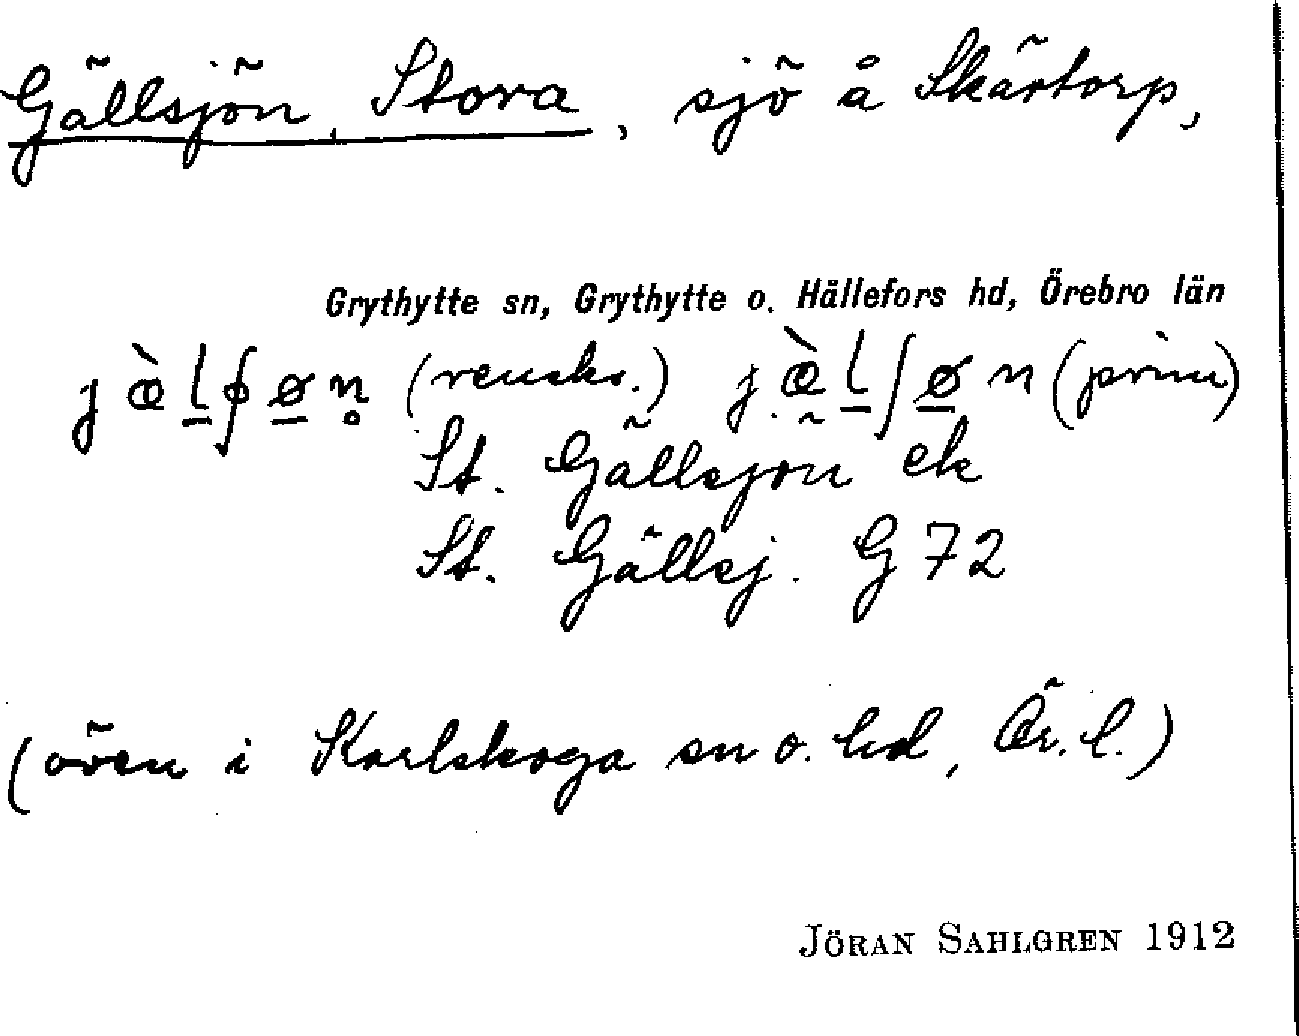 Gällsjön, Stora, sjö å Skärtorp,
Grythytte sn, Grythytte o. Hällefors hd, Örebro län
jæ̀l̲ʃø̲n̥ (renskr.) jæ̀l̲ʃø̲n (prim)
St. Gällsjön ek
St. Gällsj. G 72
(även i Karlskoga sn o. hd, Ör. l.)
JÖRAN SAHLGREN 1912